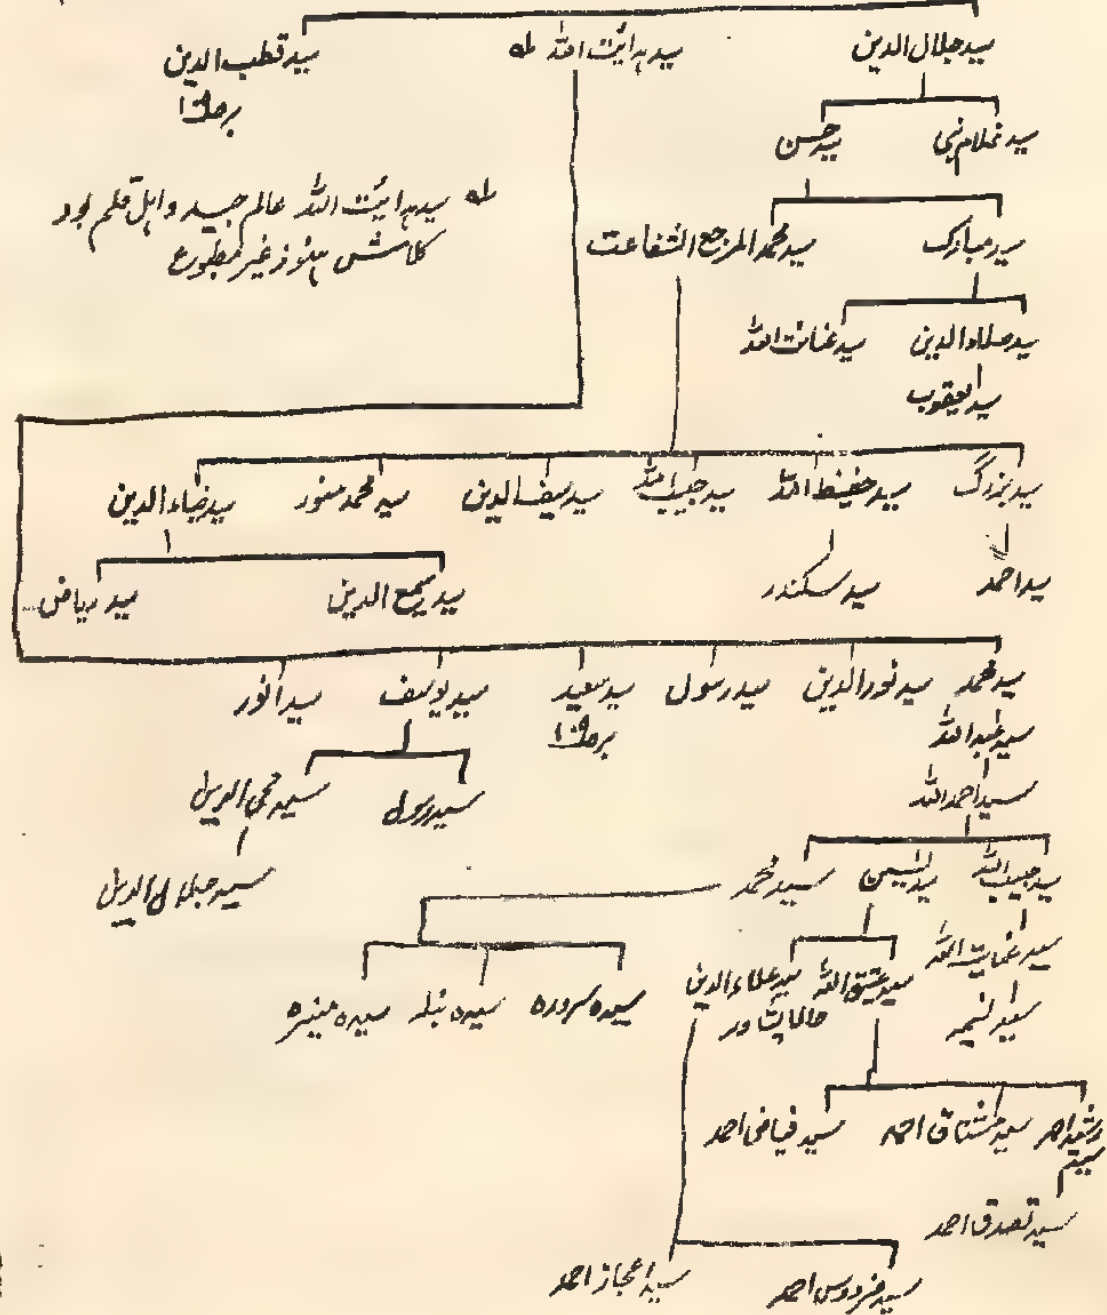 سید جلال الدین سید ہدایت اللہ لہ سید قطب الدین
برصك ا
سید غلام نبی سید حسن
لہ سید ہدایت اللہ عالم جید و اہل قلم بود
کلامش ہنوز غیر مطبوع
سید مبارک سید محمد المرجع الشفاعت
سید علاء الدین سید عنایت اللہ
سید یعقوب
سید بزرگ سید حفیظ اللہ سید حبیب اللہ سید سیف الدین سید محمد منور سید ضیاء الدین
سید احمد سید سکندر سید سمیع الدین سید ریاض
سید محمد سید نور الدین سید رسول سید سعید سید یوسف سید انور
سید عبداللہ
سید احمد اللہ سید رسول سید محی الدین
سید حبیب اللہ سید یٰسین سید محمد سید جلال الدین
سید عنایت اللہ سید عتیق اللہ سید علاء الدین سیدہ سرورہ سیدہ نبلہ سیدہ منیرہ
سید نسیم حالا پشاور
رشید احمد سید مشتاق احمد سید فیاض احمد
سید تصدق احمد
سید فردوس احمد سید اعجاز احمد